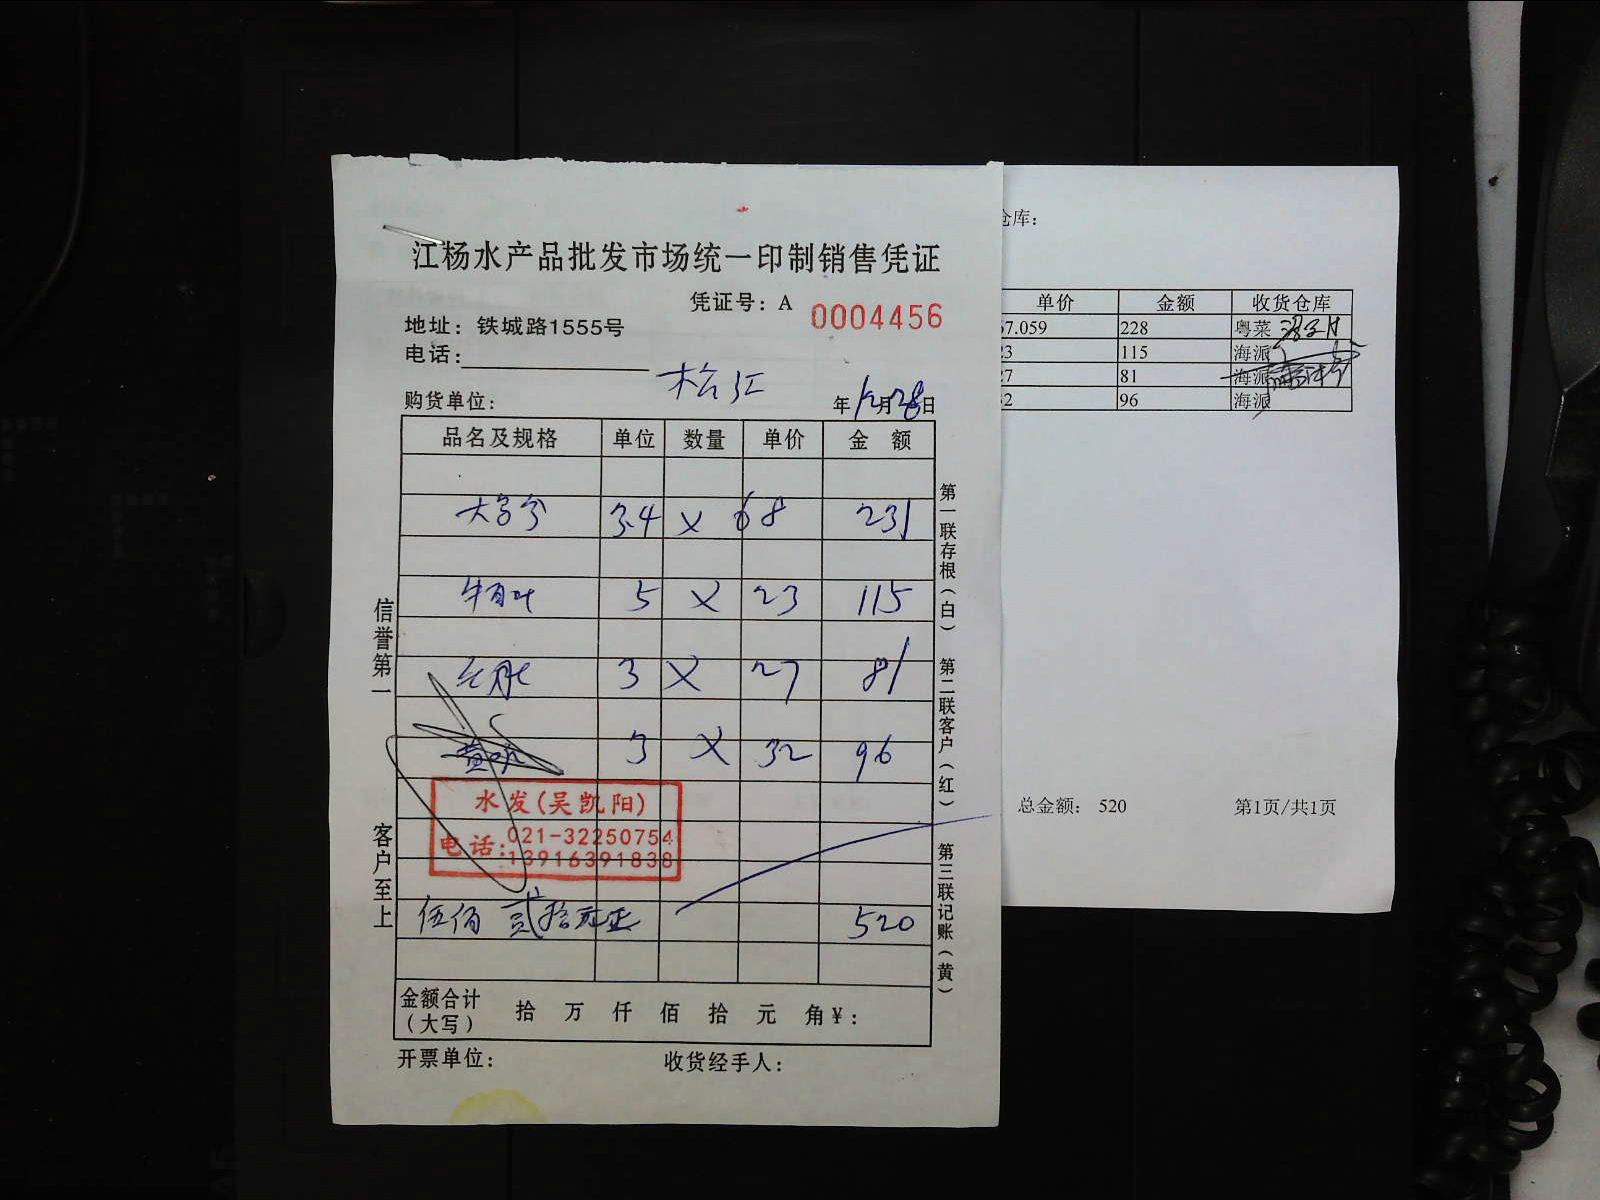 江杨水产品批发市场统一印制销售凭证
凭证号: A 0004456
地址: 铁城路1555号
电话:
购货单位: 松江 年12月28日
品名及规格 单位 数量 单价 金 额
3.4 × 68 231
牛百叶 5 × 23 115
3 × 27 81
3 × 32 96
水发(吴凯阳)
电话: 021-32250754
13916391838
伍佰贰拾元正 520
金额合计 (大写) 拾 万 仟 佰 拾 元 角 ¥:
开票单位: 收货经手人:
信誉第一
客户至上
第一联存根(白)
第二联客户(红)
第三联记账(黄)
仓库:
单价 金额 收货仓库
7.059 228 粤菜
3 115 海派
7 81 海派
2 96 海派
总金额: 520 第1页/共1页